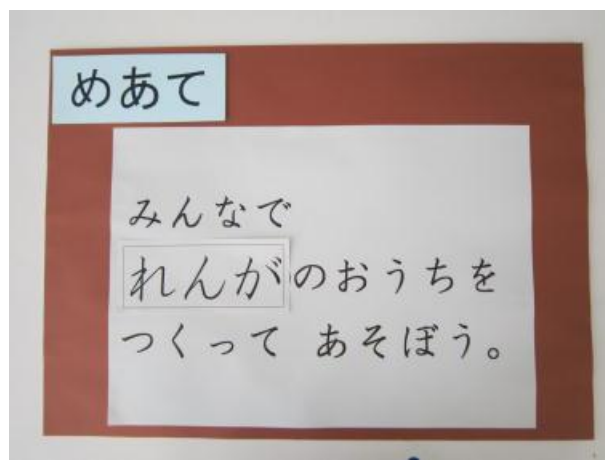 めあて
みんなで
れんがのおうちを
つくって あそぼう。